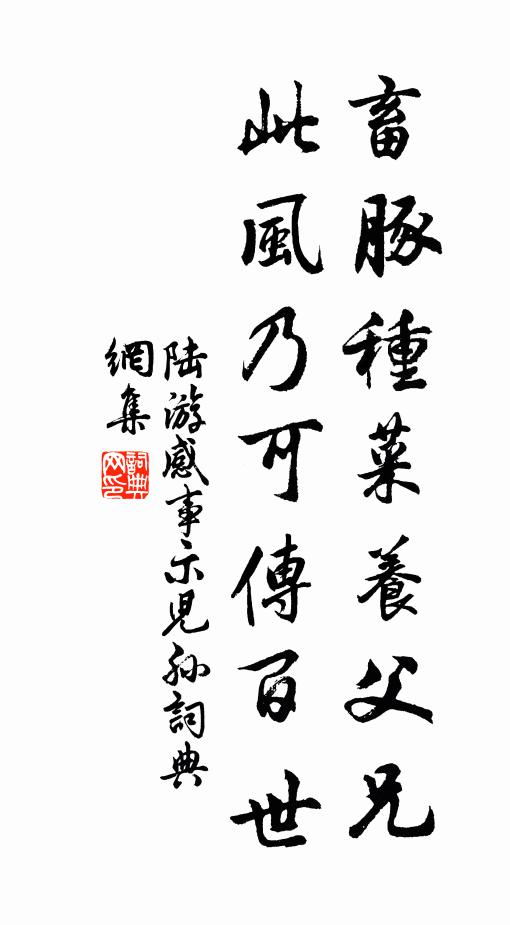 畜豚種菜養父兄
此風乃可傳百世
陸游感事示児孫詞典
網集
詞典網印